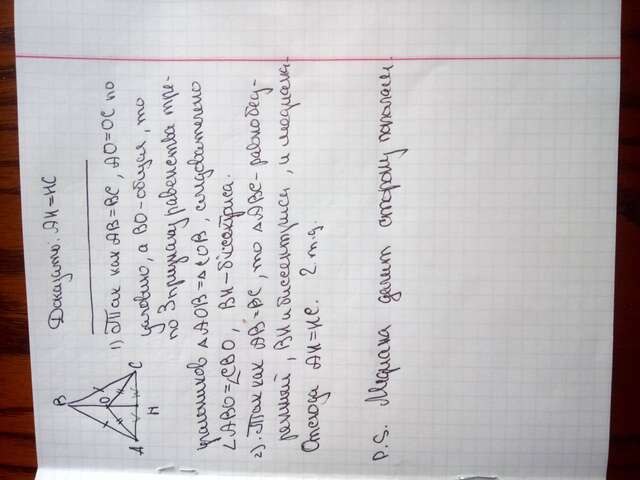 Доказать: АН=НС
B
O
A
H
C
1) Так как АВ=ВС, АО=ОС по
условию, а ВО-общая, то
по 3 признаку равенства тре-
угольников ΔАОВ=ΔСОВ, следовательно
∠АВО=∠СВО, ВН-биссектриса.
2). Так как АВ=ВС, то ΔАВС-равнобед-
ренный, ВН и биссектриса, и медиана.
Отсюда АН=НС. 2.т.д.
P.S. Медиана делит сторону пополам.